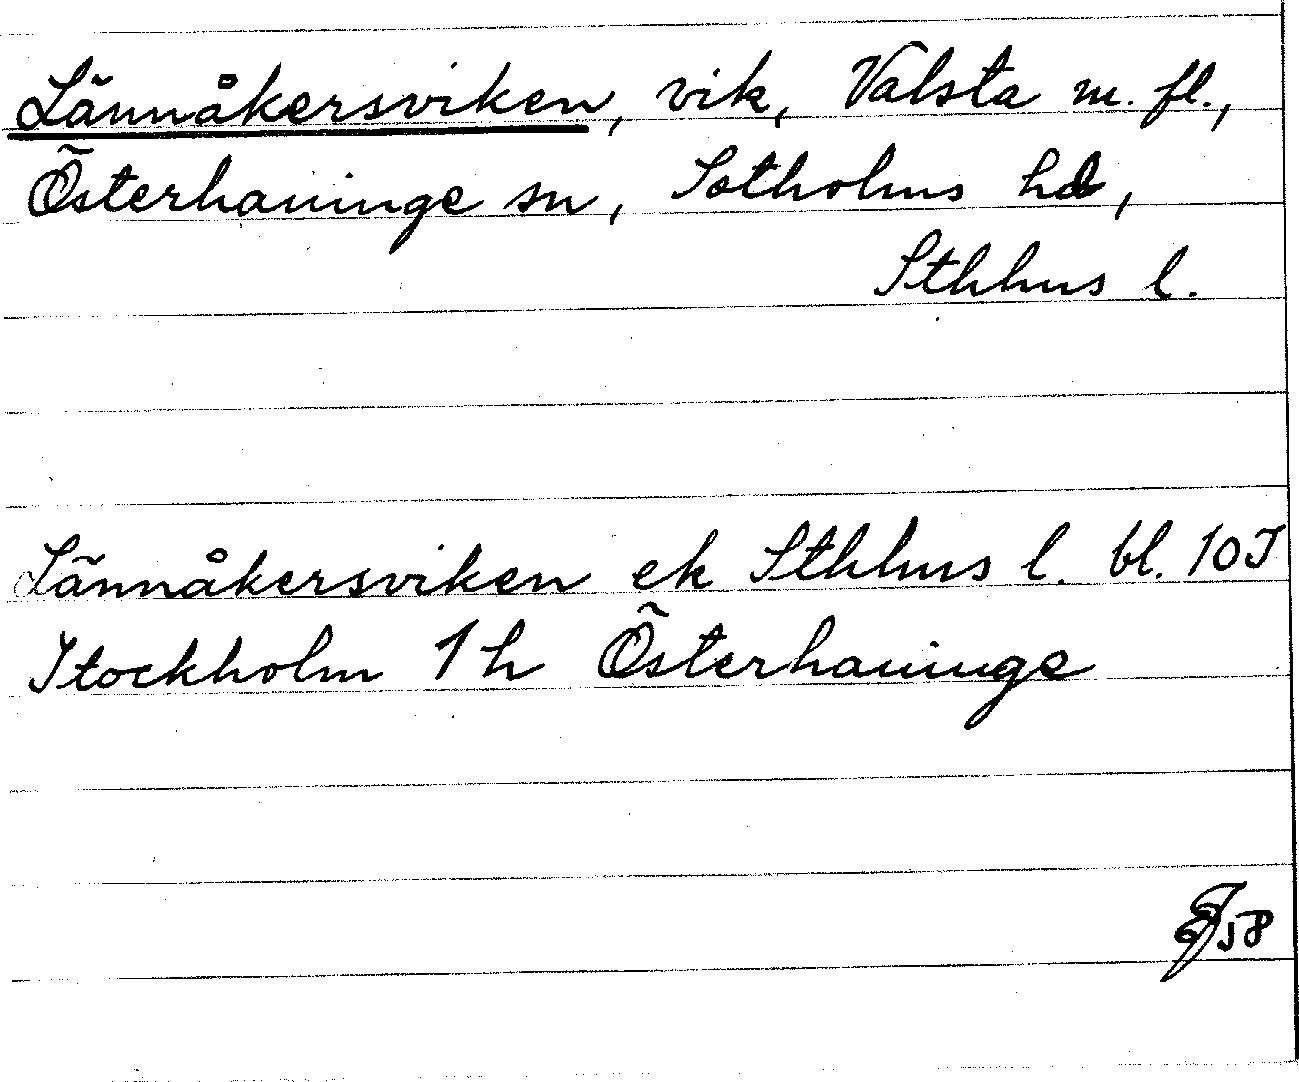 Lännåkersviken, vik, Valsta m. fl.,
Österhaninge sn, Sotholms hd,
Sthlms l.
Lännåkersviken ek Sthlms l. bl. 10I
Stockholm 1 h Österhaninge
58